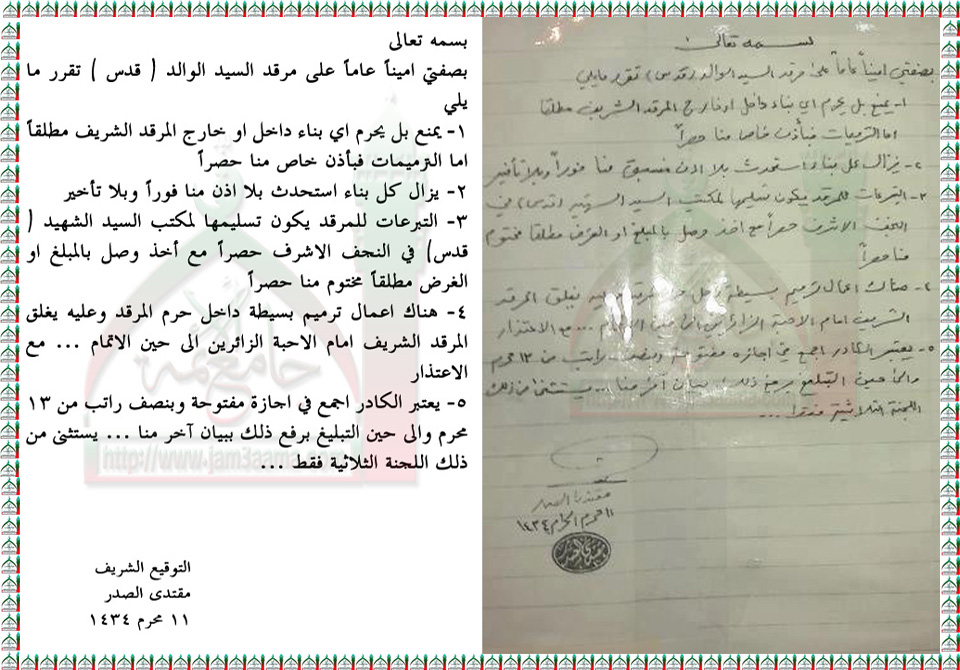 بسمه تعالى
بصفتي اميناً عاماً على مرقد السيد الوالد ( قدس ) تقرر ما
يلي
١- يمنع بل يحرم اي بناء داخل او خارج المرقد الشريف مطلقاً
اما الترميمات فبأذن خاص منا حصراً
٢- يزال كل بناء استحدث بلا اذن منا فوراً وبلا تأخير
٣- التبرعات للمرقد يكون تسليمها لمكتب السيد الشهيد (
قدس) في النجف الاشرف حصراً مع أخذ وصل بالمبلغ او
الغرض مطلقاً مختوم منا حصراً
٤- هناك اعمال ترميم بسيطة داخل حرم المرقد وعليه يغلق
المرقد الشريف امام الاحبة الزائرين الى حين الاتمام ... مع
الاعتذار
٥- يعتبر الكادر اجمع في اجازة مفتوحة وبنصف راتب من ١٣
محرم والى حين التبليغ برفع ذلك ببيان آخر منا ... يستثنى من
ذلك اللجنة الثلاثية فقط ...
التوقيع الشريف
مقتدى الصدر
١١ محرم ١٤٣٤
جامع الأئمة
http://www.jam3aama.com
بسمه تعالى
بصفتي اميناً عاماً على مرقد السيد الوالد (قدس) تقرر مايلي
١- يمنع بل يحرم اي بناء داخل او خارج المرقد الشريف مطلقا
اما الترميمات فبأذن خاص منا حصراً
٢- يزال كل بناء استحدث بلا اذن مسبق منا فوراً وبلا تأخير
٣- التبرعات للمرقد يكون تسليمها لمكتب السيد الشهيد (قدس) في
النجف الاشرف حصراً مع اخذ وصل بالمبلغ او الغرض مطلقا مختوم
منا حصراً
٤- هناك اعمال ترميم بسيطة داخل حرم المرقد وعليه يغلق المرقد
الشريف امام الاحبة الزائرين الى حين الاتمام ... مع الاعتذار
٥- يعتبر الكادر اجمع في اجازه مفتوحة وبنصف راتب من ١٣ محرم
والى حين التبليغ برفع ذلك ببيان آخر منا ... يستثنى من ذلك
اللجنة الثلاثية فقط ...
مقتدى الصدر
١١ محرم الحرام ١٤٣٤